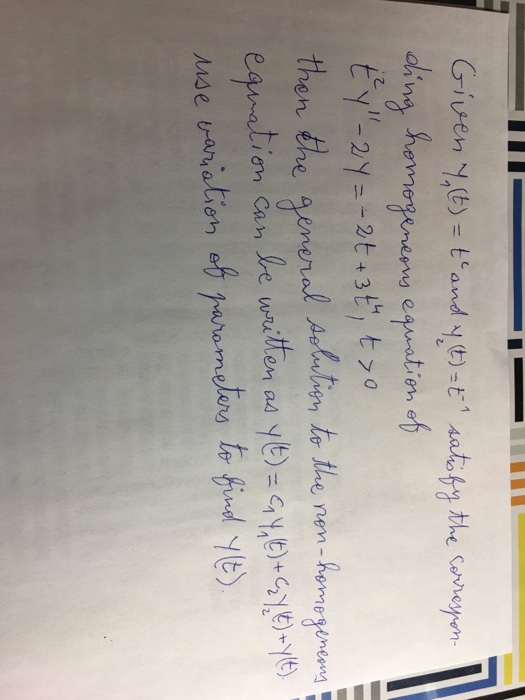 Given y₁(t) = t² and y₂(t) = t⁻¹ satisfy the correspon-
ding homogeneous equation of
t²y'' - 2y = -2t + 3t⁴, t > 0
then the general solution to the non-homogeneous
equation can be written as y(t) = c₁y₁(t) + c₂y₂(t) + Y(t).
use variation of parameters to find Y(t).